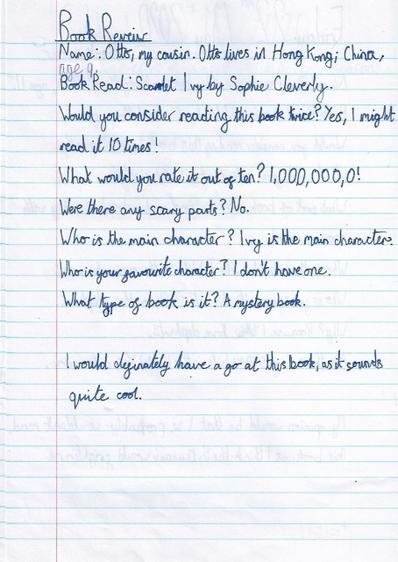 Book Review
Name: Otto, my cousin. Otto lives in Hong Kong, China,
age 9.
Book Read: Scarlet Ivy by Sophie Cleverly.
Would you consider reading this book twice? Yes, I might
read it 10 times!
What would you rate it out of ten? 1,000,000,0!
Were there any scary parts? No.
Who is the main character? Ivy is the main character.
Who is your favourite character? I don't have one.
What type of book is it? A mystery book.
I would definately have a go at this book, as it sounds
quite cool.